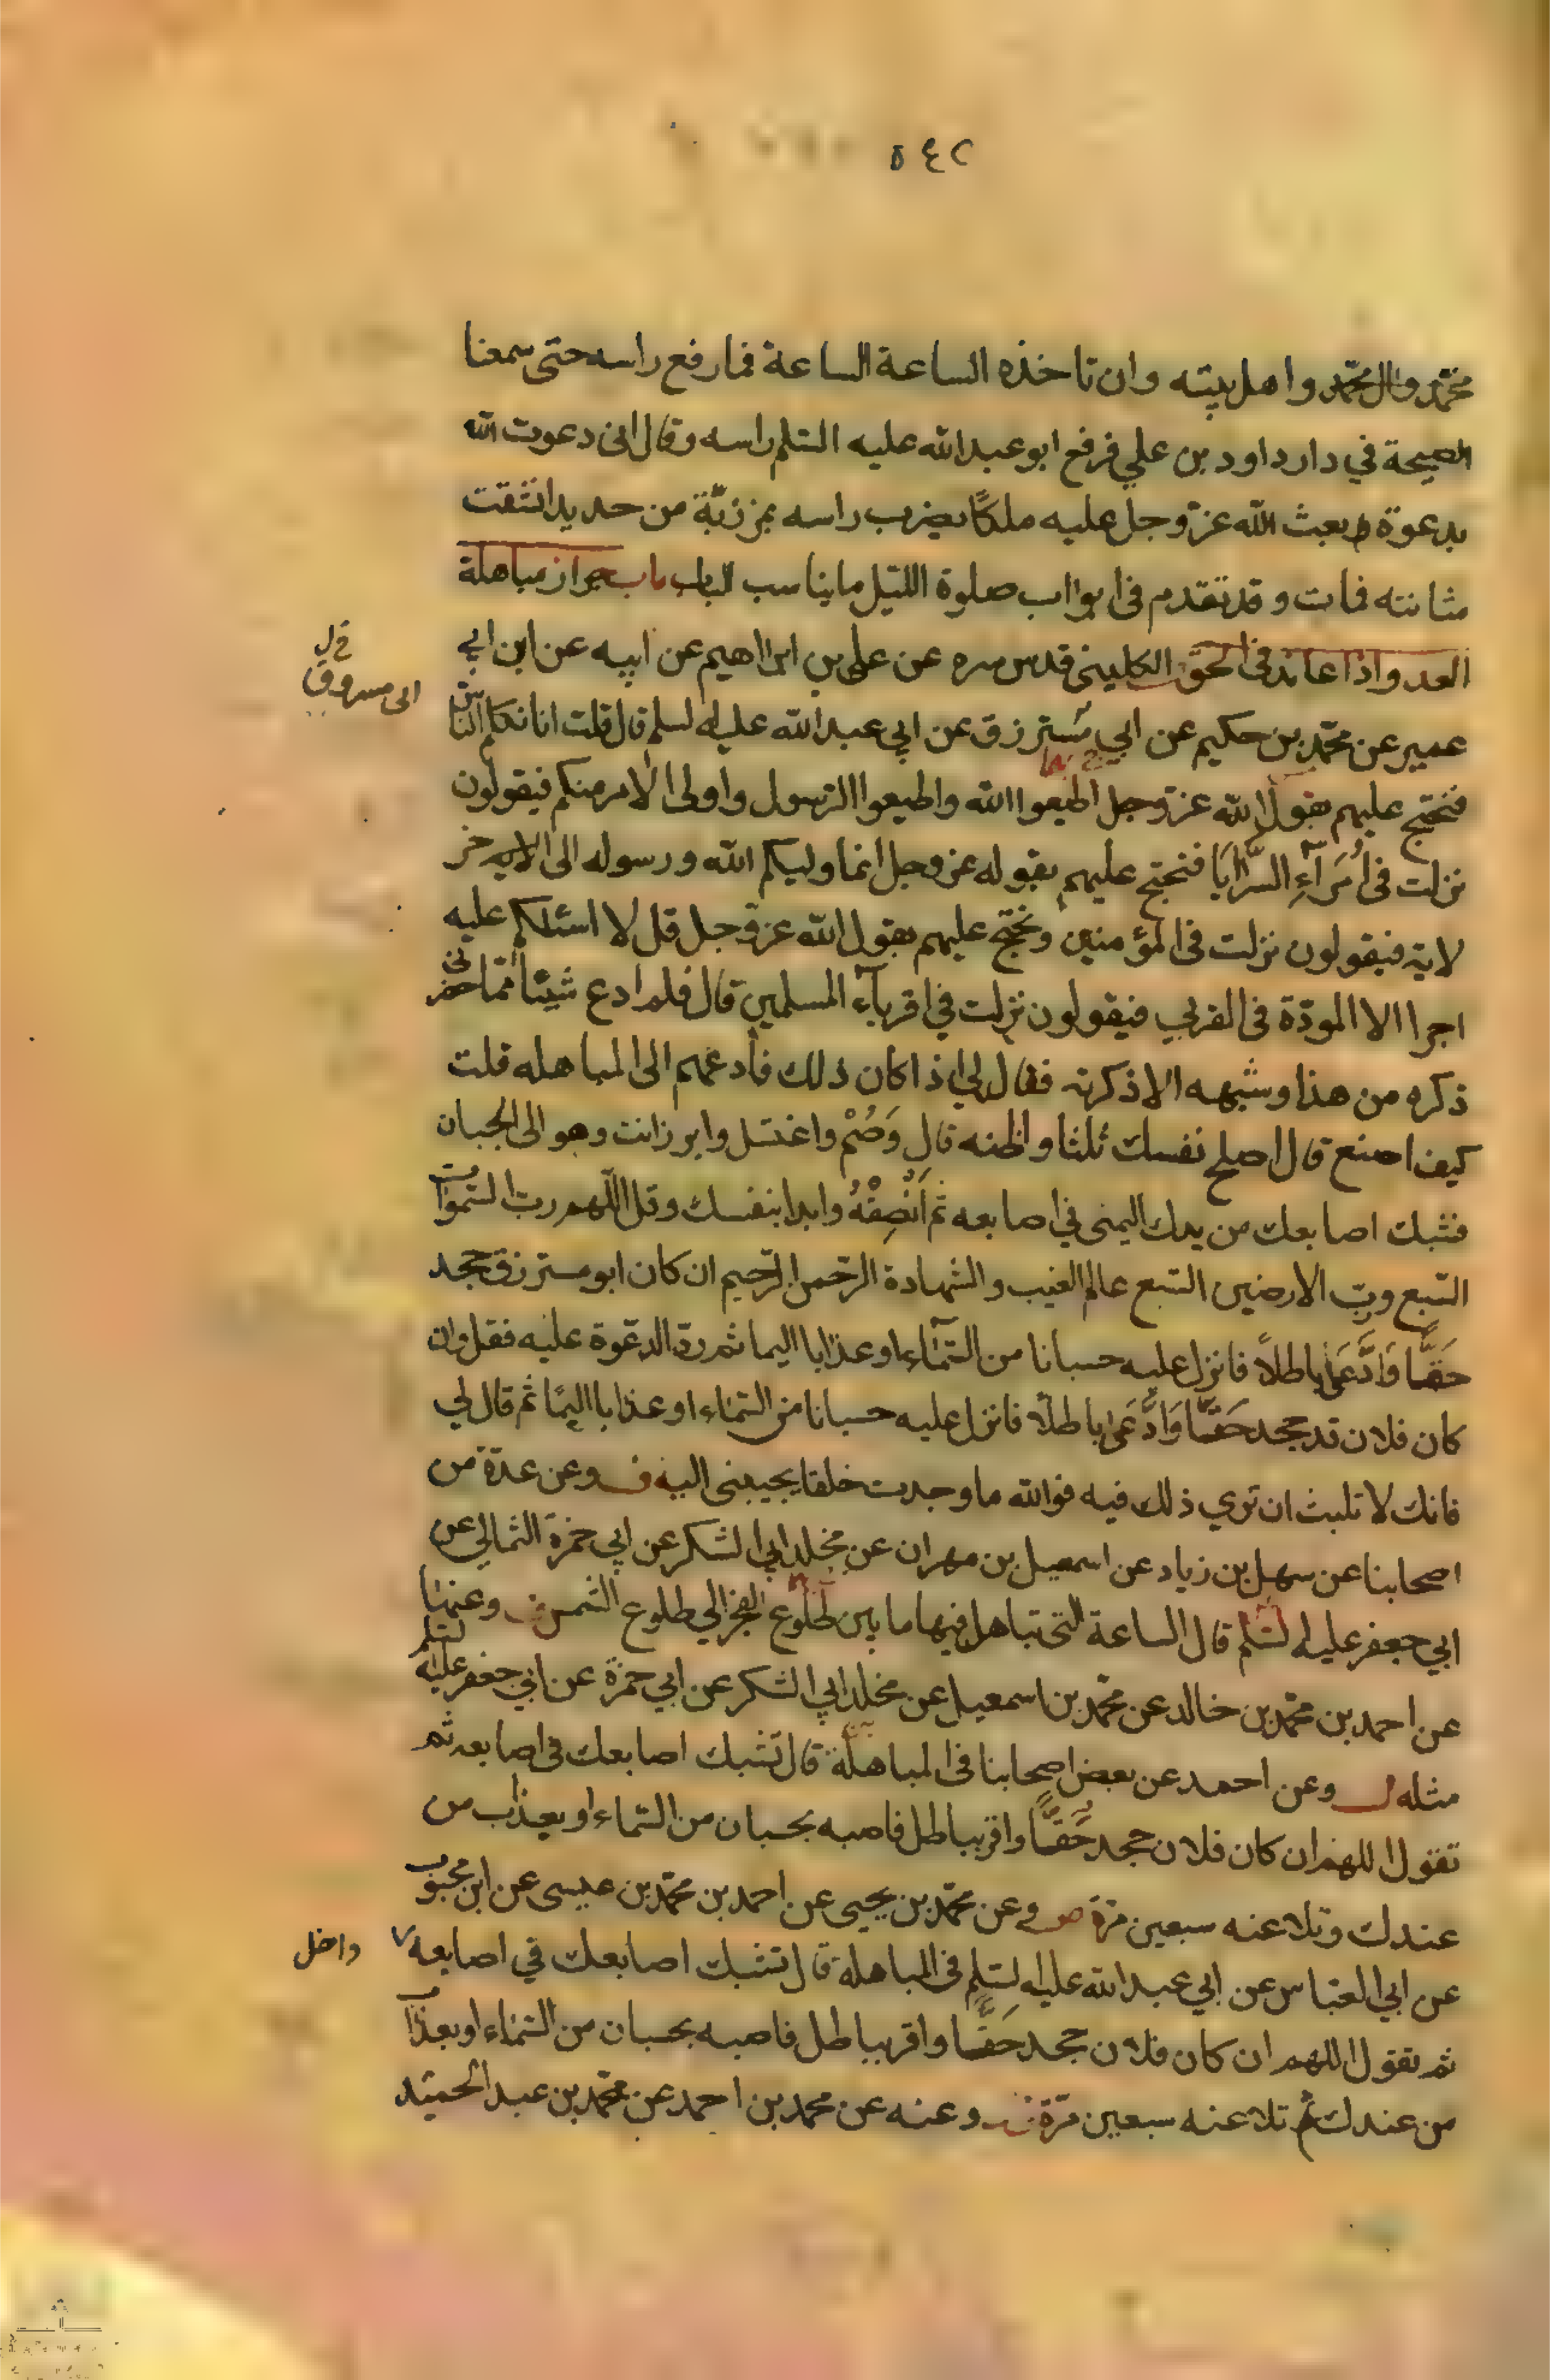 ٥٤٢
محمّد وال محمّد واهل بيته وان تاخذه الساعة الساعة فما رفع راسه حتى سمعنا
الصيحة في دار داود بن علي فرفع ابو عبد الله عليه السّلم راسه وقال انى دعوت الله
بدعوة بعث الله عزّوجل عليه ملكًا يضرب راسه بمرزبّة من حديد انشقت
مثانته فمات وقد تقدم فى ابواب صلوة اللّيل ما يناسب الباب باب جواز مباهلة
العدو اذا عاند فى الحق الكلينى قدس سره عن على بن ابراهيم عن ابيه عن ابن ابي
فى ل
ابى مسروق
عمير عن محمّد بن حكيم عن ابي مُسترزق عن ابي عبد الله عليه لسلم قال قلت انا نكلم الناس
فنحتج عليهم بقول الله عزّوجل اطيعوا الله واطيعوا الرّسول واولى الامر منكم فيقولون
نزلت فى أُمَرَآءِ السَّرَايَا فنحتج عليهم بقوله عزوجل انما وليكم الله ورسوله الى الايه خر
لاية فيقولون نزلت فى المؤمنين ونحتج عليهم بقول الله عزّوجل قل لا اسئلكم عليه
اجرا الا المودّة فى القربي فيقولون نزلت في اقربآء المسلمين قال فلم ادع شيئًا ممّا حضرنى
ذكره من هذا وشبهه الا ذكرته فقال لي اذا كان ذلك فأدعهم الى المباهله قلت
كيف اصنع قال اصلح نفسك ثلثا واظنه قال وَصُمْ واغتسل وابرز انت وهو الى الجبان
فشبك اصابعك من يدك اليمنى في اصابعه ثم اَنْصِفْهُ وابدا بنفسك وقل اللّهم ربّ السّموات
السّبع وربّ الارضين السّبع عالم الغيب والشهادة الرّحمن الرّحيم ان كان ابو مسترزق جحد
حَقًّا وَادَّعَى باطلاً فانزل عليه حسبانا من السّمآء او عذابا اليما ثم ردّ الدعوة عليه فقل وان
كان فلان قد جحد حَقًّا وَادَّعَى باطلاً فانزل عليه حسبانا من السّماء او عذابا اليمًا ثم قال لي
فانك لا تلبث ان تري ذلك فيه فوالله ما وجدت خلقا يجيبنى اليه ف وعن عدّة من
اصحابنا عن سهل بن زياد عن اسمعيل بن مهران عن مخلد ابي الشكر عن ابي حمزة الثمالي عن
ابي جعفر عليه لسّلم قال الساعة التى تباهل فيها ما بين طلوع الفجر الي طلوع الشمس ف وعنهما
عن احمد بن محمّد بن خالد عن محمّد بن اسمعيل عن مخلد ابي الشكر عن ابي حمزة عن ابي جعفر عليه لسّلم
مثله وعن احمد عن بعض اصحابنا فى المباهلة قال تشبك اصابعك فى اصابعه ثم
تقول اللهم ان كان فلان جحد حَقًّا واقرّ بباطل فاصبه بحسبان من السّماء او بعذاب من
عندك وتلاعنه سبعين مرّة وعن محمّد بن يحيى عن احمد بن محمّد بن عيسى عن ابن محبوب
عن ابي العبّاس عن ابي عبد الله عليه لسّلم فى المباهلة قال تشبك اصابعك في اصابعه
واخل
ثم تقول اللهم ان كان فلان جحد حَقًّا واقر بباطل فاصبه بحسبان من السّماء او بعذاب
من عندك ثم تلاعنه سبعين مرّة وعنه عن محمد بن احمد عن محمّد بن عبد الحميد